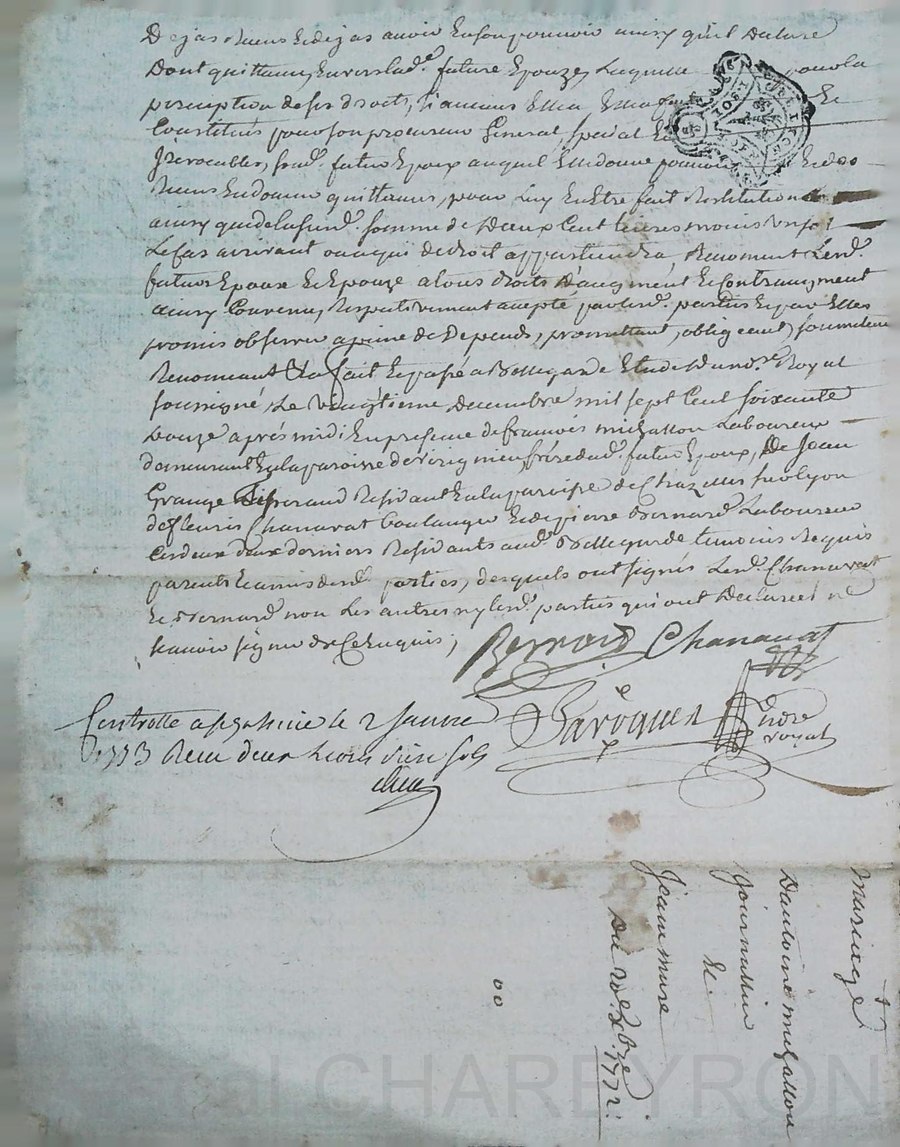 Dejas Reçus Et dejas avoir En son pouvoir ainsy qu'il Declare
Dont quittance, Envers lad.e future Epouze, Laquelle pour la
perception de ses droits, Et
Constitués pour son procureur General, special Et
Jrevocables, led. futur Epoux auquel Elle donne pouvoir
Reçus En donner quittances, pour Luy En Etre fait Restitution
ainsy que de la susd. somme de Deux Cent livres moins
Le Cas arrivant ou a qui de droit appartiendra Renoncent Lesd.
futurs Epoux Et Epouze a tous droits D'augment Et Contraugment
ainsy Convenu, Respectivement accepté par lesd. parties Et par Elles
promis observer a peine de Depends, promettant, obligeant, soumettant
Renonceant &a fait Et passé a Bellegarde Etude Du no.re Royal
soussigné, Le vingtieme Decembre mil sept Cent soixante
douze après midi En presence de françois mihallon Laboureur
demeurant En la paroisse de frere dud. futur Epoux, De Jean
Grange Tisserand Residant En la paroisse de Chazelles sur Lyon
de fleuris Chanavat boulanger Et de pierre Bernard Laboureur
Ces deux derniers Residants aud. Bellegarde temoins Requis
parents Et amis desd. parties, desquels ont signés Lesd. Chanavat
Et Bernard non Les autres ny lesd. parties qui ont Declarées ne
sçavoir signer de Ce Enquis,
Bernard Chanavat
Laroque No.re royal
Controllé a le 2 Janvier
1773 Reçu deux livres dix sols
Mariage
D'antoine mihallon
journallier
Et
Jeanne mure
Du 20.e Xbre 1772.
CHAREYRON